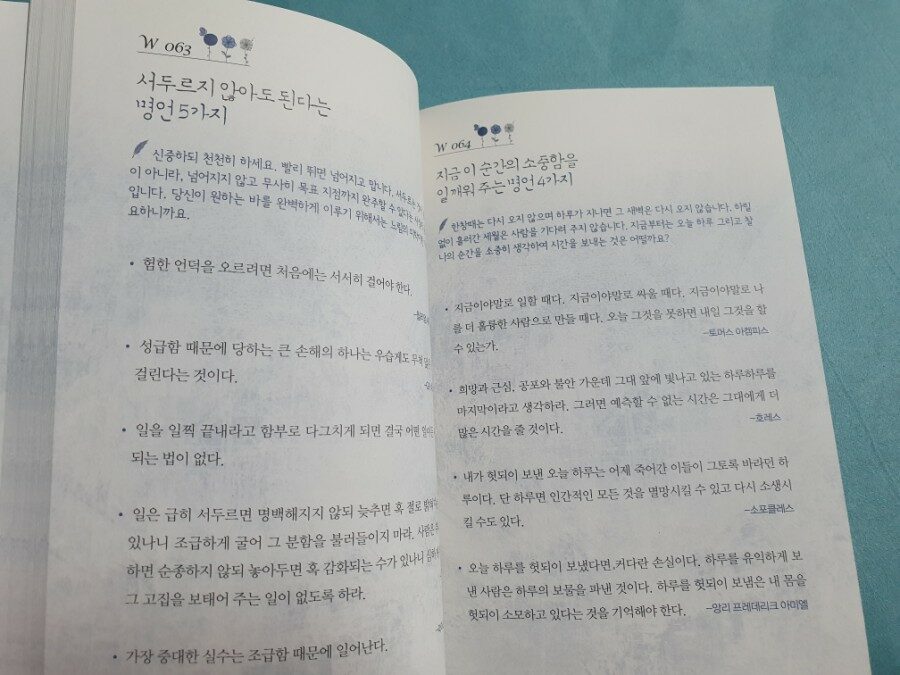 W 063
서두르지 않아도 된다는
명언 5가지
신중하되 천천히 하세요. 빨리 뛰면 넘어지고 맙니다. 서두르는
이 아니라, 넘어지지 않고 무사히 목표 지점까지 완주할 수 있다는
입니다. 당신이 원하는 바를 완벽하게 이루기 위해서는 느림의
요하니까요.
• 험한 언덕을 오르려면 처음에는 서서히 걸어야 한다.
• 성급함 때문에 당하는 큰 손해의 하나는 우습게도 무척
걸린다는 것이다.
• 일을 일찍 끝내라고 함부로 다그치게 되면 결국 어떤 일이든
되는 법이 없다.
• 일은 급히 서두르면 명백해지지 않되 늦추면 혹 절로
있나니 조급하게 굴어 그 분함을 불러들이지 마라. 사람은
하면 순종하지 않되 놓아두면 혹 감화되는 수가 있나니
그 고집을 보태어 주는 일이 없도록 하라.
• 가장 중대한 실수는 조급함 때문에 일어난다.
W 064
지금 이 순간의 소중함을
일깨워 주는 명언 4가지
한창때는 다시 오지 않으며 하루가 지나면 그 새벽은 다시 오지 않습니다. 하릴
없이 흘러간 세월은 사람을 기다려 주지 않습니다. 지금부터는 오늘 하루 그리고 찰
나의 순간을 소중히 생각하여 시간을 보내는 것은 어떨까요?
• 지금이야말로 일할 때다. 지금이야말로 싸울 때다. 지금이야말로 나
를 더 훌륭한 사람으로 만들 때다. 오늘 그것을 못하면 내일 그것을 할
수 있는가.
–토머스 아켐피스
• 희망과 근심, 공포와 불안 가운데 그대 앞에 빛나고 있는 하루하루를
마지막이라고 생각하라. 그러면 예측할 수 없는 시간은 그대에게 더
많은 시간을 줄 것이다.
–호레스
• 내가 헛되이 보낸 오늘 하루는 어제 죽어간 이들이 그토록 바라던 하
루이다. 단 하루면 인간적인 모든 것을 멸망시킬 수 있고 다시 소생시
킬 수도 있다.
–소포클레스
• 오늘 하루를 헛되이 보냈다면,커다란 손실이다. 하루를 유익하게 보
낸 사람은 하루의 보물을 파낸 것이다. 하루를 헛되이 보냄은 내 몸을
헛되이 소모하고 있다는 것을 기억해야 한다. –앙리 프레데리크 아미엘